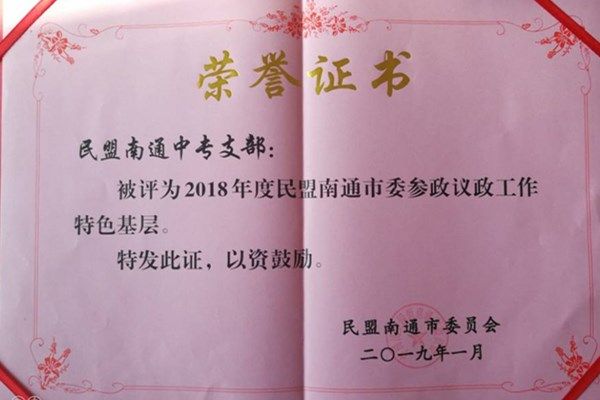 荣誉证书
民盟南通中专支部：
被评为2018年度民盟南通市委参政议政工作
特色基层。
特发此证，以资鼓励。
民盟南通市委员会
二〇一九年一月